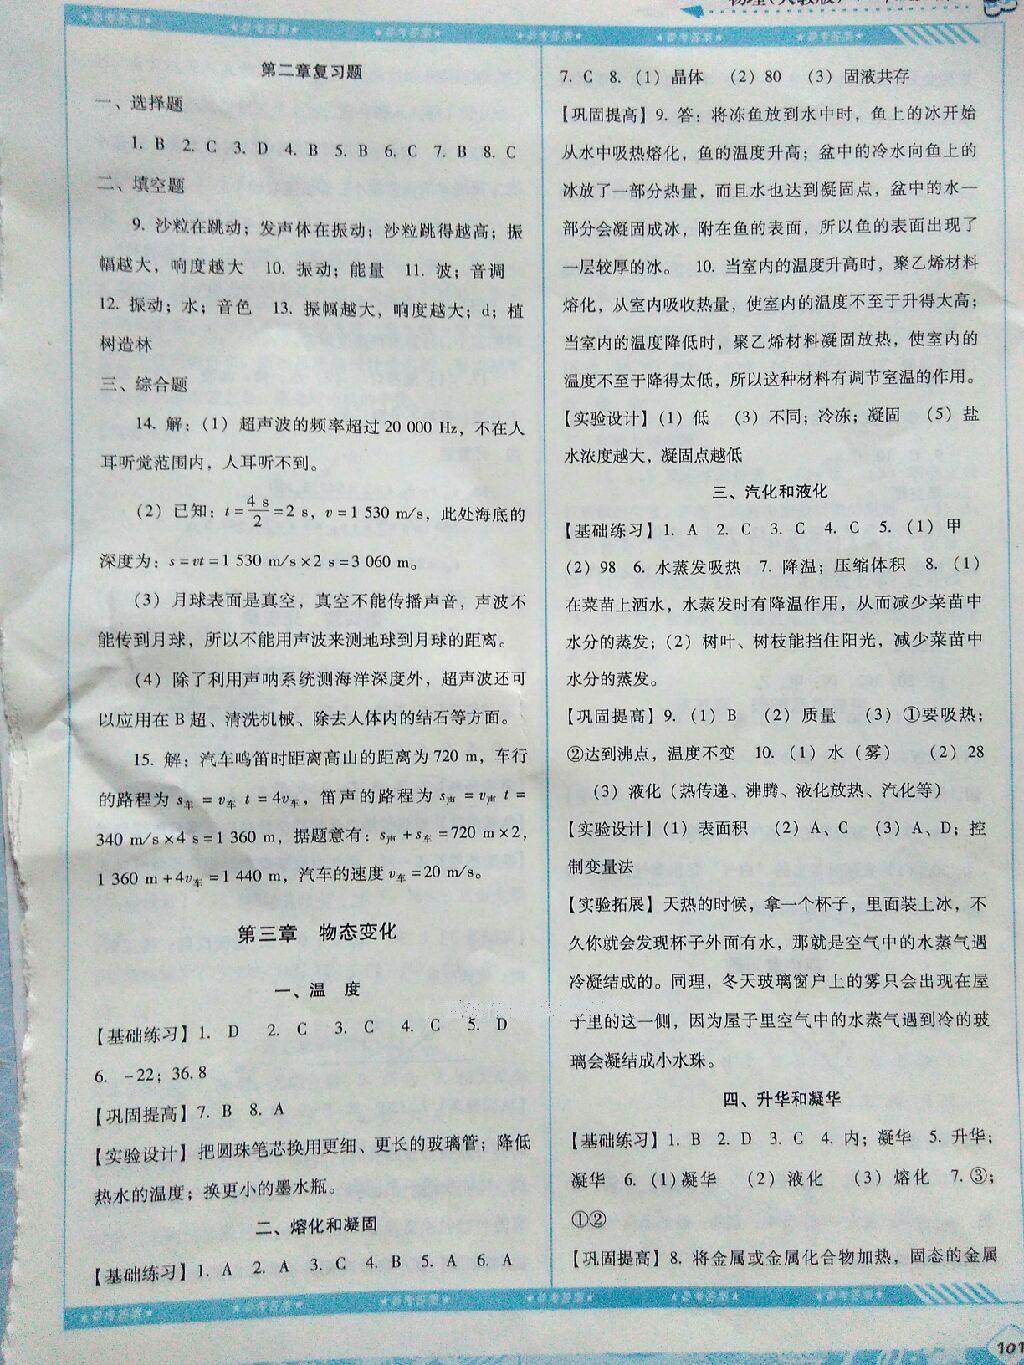 第二章复习题
一、选择题
1. B 2. C 3. D 4. B 5. B 6. C 7. B 8. C
二、填空题
9. 沙粒在跳动；发声体在振动；沙粒跳得越高；振
幅越大，响度越大 10. 振动；能量 11. 波；音调
12. 振动；水；音色 13. 振幅越大，响度越大；d；植
树造林
三、综合题
14. 解：(1) 超声波的频率超过 20 000 Hz，不在人
耳听觉范围内，人耳听不到。
(2) 已知：t=4 s/2=2 s，v=1 530 m/s，此处海底的
深度为：s=vt=1 530 m/s×2 s=3 060 m。
(3) 月球表面是真空，真空不能传播声音，声波不
能传到月球，所以不能用声波来测地球到月球的距离。
(4) 除了利用声呐系统测海洋深度外，超声波还可
以应用在 B 超、清洗机械、除去人体内的结石等方面。
15. 解：汽车鸣笛时距离高山的距离为 720 m，车行
的路程为 s车 = v车 t = 4v车，笛声的路程为 s声 = v声 t =
340 m/s×4 s=1 360 m，据题意有：s声+s车=720 m×2，
1 360 m+4v车=1 440 m，汽车的速度 v车=20 m/s。
第三章 物态变化
一、温 度
【基础练习】1. D 2. C 3. C 4. C 5. D
6. -22；36.8
【巩固提高】7. B 8. A
【实验设计】把圆珠笔芯换用更细、更长的玻璃管；降低
热水的温度；换更小的墨水瓶。
二、熔化和凝固
【基础练习】1. A 2. A 3. C 4. B 5. A 6. A
7. C 8. (1) 晶体 (2) 80 (3) 固液共存
【巩固提高】9. 答：将冻鱼放到水中时，鱼上的冰开始
从水中吸热熔化，鱼的温度升高；盆中的冷水向鱼上的
冰放了一部分热量，而且水也达到凝固点，盆中的水一
部分会凝固成冰，附在鱼的表面，所以鱼的表面出现了
一层较厚的冰。 10. 当室内的温度升高时，聚乙烯材料
熔化，从室内吸收热量，使室内的温度不至于升得太高；
当室内的温度降低时，聚乙烯材料凝固放热，使室内的
温度不至于降得太低，所以这种材料有调节室温的作用。
【实验设计】(1) 低 (3) 不同；冷冻；凝固 (5) 盐
水浓度越大，凝固点越低
三、汽化和液化
【基础练习】1. A 2. C 3. C 4. C 5. (1) 甲
(2) 98 6. 水蒸发吸热 7. 降温；压缩体积 8. (1)
在菜苗上洒水，水蒸发时有降温作用，从而减少菜苗中
水分的蒸发；(2) 树叶、树枝能挡住阳光，减少菜苗中
水分的蒸发。
【巩固提高】9. (1) B (2) 质量 (3) ①要吸热；
②达到沸点，温度不变 10. (1) 水（雾） (2) 28
(3) 液化（热传递、沸腾、液化放热、汽化等）
【实验设计】(1) 表面积 (2) A、C (3) A、D；控
制变量法
【实验拓展】天热的时候，拿一个杯子，里面装上冰，不
久你就会发现杯子外面有水，那就是空气中的水蒸气遇
冷凝结成的。同理，冬天玻璃窗户上的雾只会出现在屋
子里的这一侧，因为屋子里空气中的水蒸气遇到冷的玻
璃会凝结成小水珠。
四、升华和凝华
【基础练习】1. B 2. D 3. C 4. 内；凝华 5. 升华；
凝华 6. (1)凝华 (2) 液化 (3) 熔化 7. ③；
①②
【巩固提高】8. 将金属或金属化合物加热，固态的金属
101